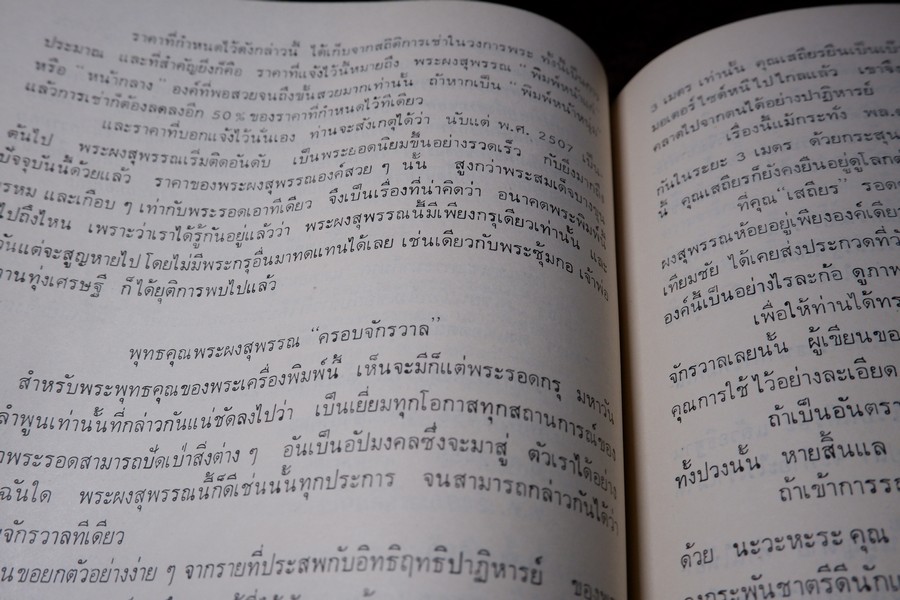 ราคาที่กำหนดไว้ดังกล่าวนี้ ได้เก็บจากสถิติการเช่าในวงการพระ ทั้งนี้เป็น
ประมาณ และที่สำคัญยิ่งก็คือ ราคาที่แจ้งไว้นี้หมายถึง พระผงสุพรรณ “พิมพ์หน้าแก่”
หรือ “หน้ากลาง” องค์ที่พอสวยจนถึงขั้นสวยมากเท่านั้น ถ้าหากเป็น “พิมพ์หน้าหนุ่ม”
แล้วการเช่าก็ต้องลดลงอีก 50 % ของราคาที่กำหนดไว้ทีเดียว
และราคาที่บอกแจ้งไว้นั่นเอง ท่านจะสังเกตุได้ว่า นับแต่ พ.ศ. 2507 เป็น
ต้นไป พระผงสุพรรณเริ่มติดอันดับ เป็นพระยอดนิยมขึ้นอย่างรวดเร็ว กับยิ่งมาถึง
ปัจจุบันนี้ด้วยแล้ว ราคาของพระผงสุพรรณองค์สวย ๆ นั้น สูงกว่าพระสมเด็จบางขุน
พรหม และเกือบ ๆ เท่ากับพระรอดเอาทีเดียว จึงเป็นเรื่องที่น่าคิดว่า อนาคตพระพิมพ์นี้
ไปถึงไหน เพราะว่าเราได้รู้กันอยู่แล้วว่า พระผงสุพรรณนี้มีเพียงกรุเดียวเท่านั้น และ
วันแต่จะสูญหายไป โดยไม่มีพระกรุอื่นมาทดแทนได้เลย เช่นเดียวกับพระซุ้มกอ เจ้าพ่อ
ลานทุ่งเศรษฐี ก็ได้ยุติการพบไปแล้ว
พุทธคุณพระผงสุพรรณ “ครอบจักรวาล”
สำหรับพระพุทธคุณของพระเครื่องพิมพ์นี้ เห็นจะมีก็แต่พระรอดกรุ มหาวัน
ลำพูนเท่านั้นที่กล่าวกันแน่ชัดลงไปว่า เป็นเยี่ยมทุกโอกาสทุกสถานการณ์ของ
พระรอดสามารถปัดเป่าสิ่งต่าง ๆ อันเป็นอัปมงคลซึ่งจะมาสู่ ตัวเราได้อย่าง
ฉันใด พระผงสุพรรณนี้ก็ดีเช่นนั้นทุกประการ จนสามารถกล่าวกันได้ว่า
จักรวาลทีเดียว
ขอยกตัวอย่างง่าย ๆ จากรายที่ประสพกับอิทธิฤทธิปาฏิหารย์ ของ
3 เมตร เท่านั้น คุณเสถียรยืนเป็น
มอเตอร์ไซด์หนีไปไกลแล้ว เขาจึง
คลาดไปจากตนได้อย่างปาฏิหารย์
เรื่องนี้แม้กระทั่ง พล.
กันในระยะ 3 เมตร ด้วยกระสุน
นี้ คุณเสถียรก็ยังคงยืนอยู่คู่โลก
ที่คุณ “เสถียร” รอด
ผงสุพรรณห้อยอยู่เพียงองค์เดีย
เทียมชัย ได้เคยส่งประกวดที่วั
องค์นี้เป็นอย่างไรละก้อ ดูภาพ
เพื่อให้ท่านได้ทร
จักรวาลเลยนั้น ผู้เขียนขอ
คุณการใช้ไว้อย่างละเอียด
ถ้าเป็นอันตรา
ทั้งปวงนั้น หายสิ้นแล
ถ้าเข้าการรณ
ด้วย นะวะหะระ คุณ
กระพันชาตรีดีนักแ